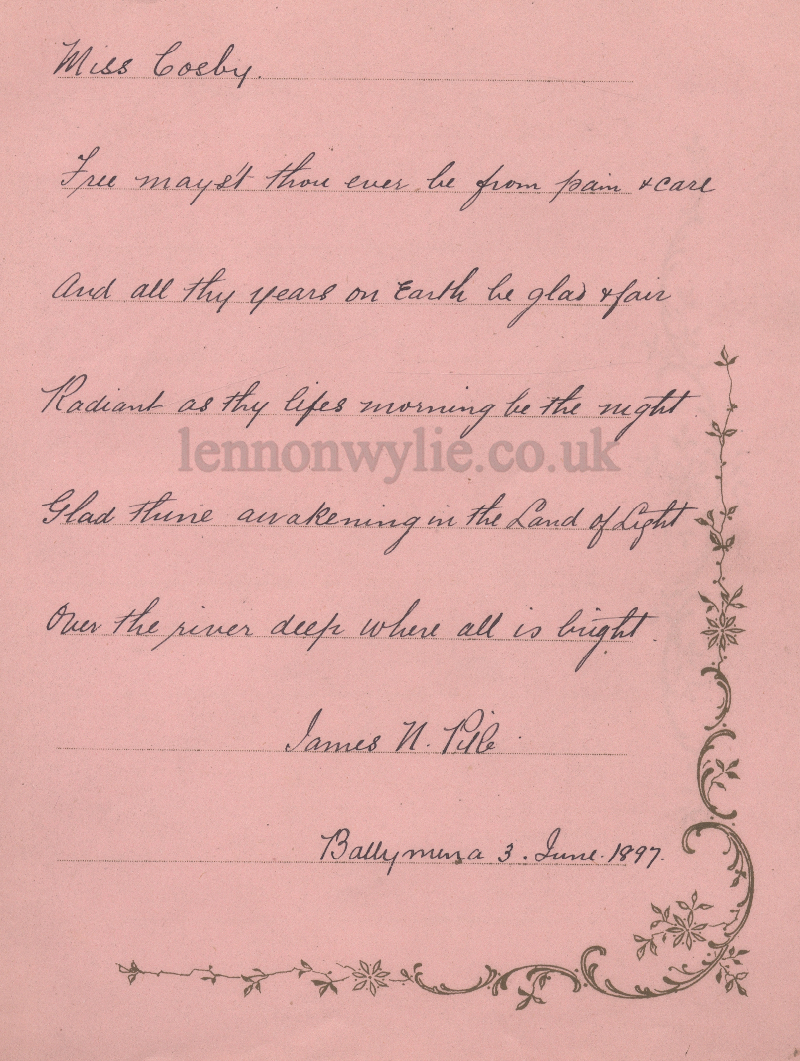 Miss Cosby.
Free mays't thou ever be from pain & care
And all thy years on Earth be glad & fair
Radiant as thy lifes morning be the night
lennonwylie.co.uk
Glad thine awakening in the Land of Light
Over the river deep where all is bright.
James N.
Ballymena 3. June. 1897.